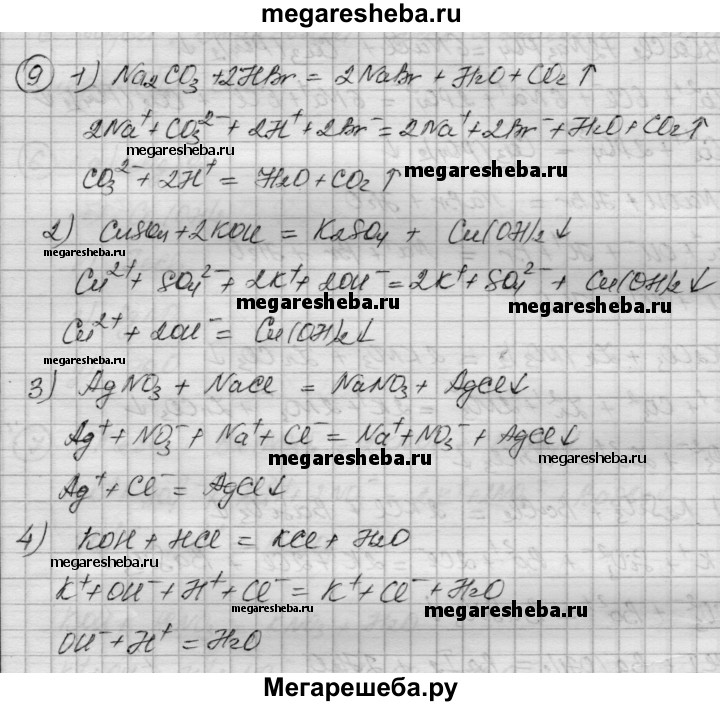 megaresheba.ru
9 1) Na₂CO₃ + 2HBr = 2NaBr + H₂O + CO₂↑
2Na⁺ + CO₃²⁻ + 2H⁺ + 2Br⁻ = 2Na⁺ + 2Br⁻ + H₂O + CO₂↑
megaresheba.ru
CO₃²⁻ + 2H⁺ = H₂O + CO₂↑ megaresheba.ru
2) CuSO₄ + 2KOH = K₂SO₄ + Cu(OH)₂↓
megaresheba.ru
Cu²⁺ + SO₄²⁻ + 2K⁺ + 2OH⁻ = 2K⁺ + SO₄²⁻ + Cu(OH)₂↓
megaresheba.ru megaresheba.ru
Cu²⁺ + 2OH⁻ = Cu(OH)₂↓
megaresheba.ru
3) AgNO₃ + NaCl = NaNO₃ + AgCl↓
Ag⁺ + NO₃⁻ + Na⁺ + Cl⁻ = Na⁺ + NO₃⁻ + AgCl↓
megaresheba.ru megaresheba.ru
Ag⁺ + Cl⁻ = AgCl↓
4) KOH + HCl = KCl + H₂O
megaresheba.ru
K⁺ + OH⁻ + H⁺ + Cl⁻ = K⁺ + Cl⁻ + H₂O
megaresheba.ru megaresheba.ru
OH⁻ + H⁺ = H₂O
Мегарешеба.ру